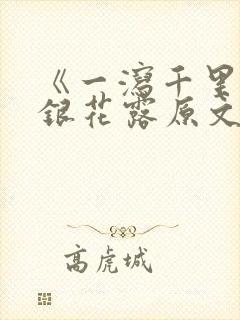 《一泻千里
银花露原文
高虎城